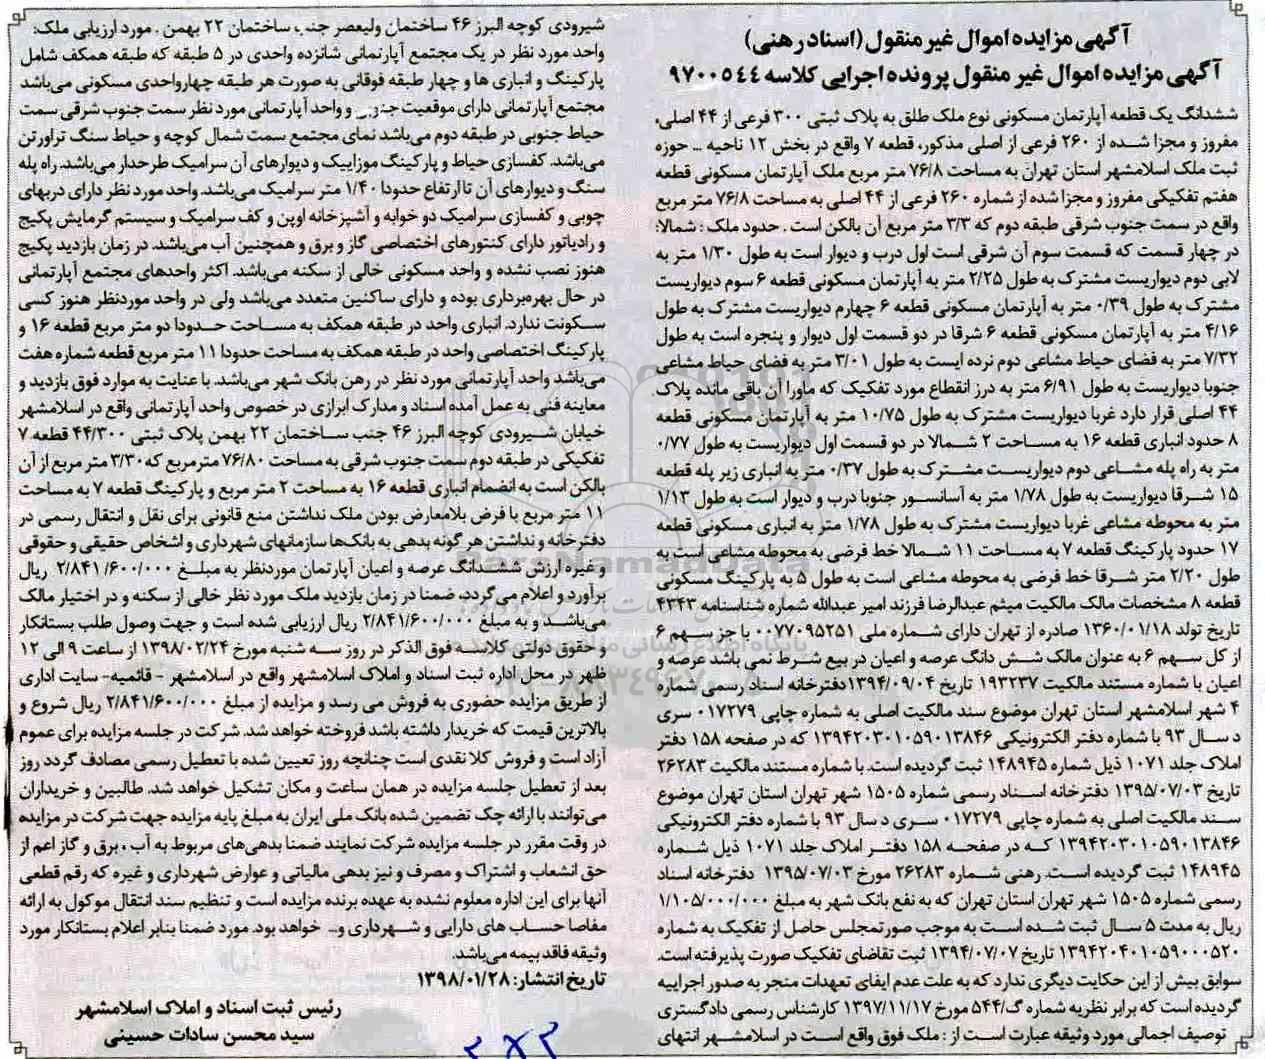 آگهی مزایده اموال غیر منقول (اسناد رهنی)
آگهی مزایده اموال غیر منقول پرونده اجرایی کلاسه ۹۷۰۰۵۴۴
ششدانگ یک قطعه آپارتمان مسکونی نوع ملک طلق به پلاک ثبتی ۳۰۰ فرعی از ۴۴ اصلی،
مفروز و مجزا شده از ۲۶۰ فرعی از اصلی مذکور، قطعه ۷ واقع در بخش ۱۲ ناحیه ... حوزه
ثبت ملک اسلامشهر استان تهران به مساحت ۷۶/۸ متر مربع ملک آپارتمان مسکونی قطعه
هفتم تفکیکی مفروز و مجزا شده از شماره ۲۶۰ فرعی از ۴۴ اصلی به مساحت ۷۶/۸ متر مربع
واقع در سمت جنوب شرقی طبقه دوم که ۳/۳ متر مربع آن بالکن است . حدود ملک : شمالا:
در چهار قسمت که قسمت سوم آن شرقی است اول درب و دیوار است به طول ۱/۳۰ متر به
لابی دوم دیواریست مشترک به طول ۲/۲۵ متر به آپارتمان مسکونی قطعه ۶ سوم دیواریست
مشترک به طول ۰/۳۹ متر به آپارتمان مسکونی قطعه ۶ چهارم دیواریست مشترک به طول
۴/۱۶ متر به آپارتمان مسکونی قطعه ۶ شرقا در دو قسمت اول دیوار و پنجره است به طول
۷/۳۲ متر به فضای حیاط مشاعی دوم نرده ایست به طول ۳/۰۱ متر به فضای حیاط مشاعی
جنوبا دیواریست به طول ۶/۹۱ متر به درز انقطاع مورد تفکیک که ماورا آن باقی مانده پلاک
۴۴ اصلی قرار دارد غربا دیواریست مشترک به طول ۱۰/۷۵ متر به آپارتمان مسکونی قطعه
۸ حدود انباری قطعه ۱۶ به مساحت ۲ شمالا در دو قسمت اول دیواریست به طول ۰/۷۷
متر به راه پله مشاعی دوم دیواریست مشترک به طول ۰/۳۷ متر به انباری زیر پله قطعه
۱۵ شرقا دیواریست به طول ۱/۷۸ متر به آسانسور جنوبا درب و دیوار است به طول ۱/۱۳
متر به محوطه مشاعی غربا دیواریست مشترک به طول ۱/۷۸ متر به انباری مسکونی قطعه
۱۷ حدود پارکینگ قطعه ۷ به مساحت ۱۱ شمالا خط فرضی به محوطه مشاعی است به
طول ۲/۲۰ متر شرقا خط فرضی به محوطه مشاعی است به طول ۵ به پارکینگ مسکونی
قطعه ۸ مشخصات مالک مالکیت میثم عبدالرضا فرزند امیر عبدالله شماره شناسنامه ۴۳۴۳
تاریخ تولد ۱۳۶۰/۰۱/۱۸ صادره از تهران دارای شماره ملی ۰۰۷۷۰۹۵۲۵۱ با جز سهم ۶
از کل سهم ۶ به عنوان مالک شش دانگ عرصه و اعیان در بیع شرط نمی باشد عرصه و
اعیان با شماره مستند مالکیت ۱۹۳۲۳۷ تاریخ ۱۳۹۴/۰۹/۰۴ دفترخانه اسناد رسمی شماره
۴ شهر اسلامشهر استان تهران موضوع سند مالکیت اصلی به شماره چاپی ۰۱۷۲۷۹ سری
د سال ۹۳ با شماره دفتر الکترونیکی ۱۳۹۴۲۰۳۰۱۰۵۹۰۱۳۸۴۶ که در صفحه ۱۵۸ دفتر
املاک جلد ۱۰۷۱ ذیل شماره ۱۴۸۹۴۵ ثبت گردیده است. با شماره مستند مالکیت ۲۶۲۸۳
تاریخ ۱۳۹۵/۰۷/۰۳ دفترخانه اسناد رسمی شماره ۱۵۰۵ شهر تهران استان تهران موضوع
سند مالکیت اصلی به شماره چاپی ۰۱۷۲۷۹ سری د سال ۹۳ با شماره دفتر الکترونیکی
۱۳۹۴۲۰۳۰۱۰۵۹۰۱۳۸۴۶ که در صفحه ۱۵۸ دفتر املاک جلد ۱۰۷۱ ذیل شماره
۱۴۸۹۴۵ ثبت گردیده است. رهنی شماره ۲۶۲۸۳ مورخ ۱۳۹۵/۰۷/۰۳ دفترخانه اسناد
رسمی شماره ۱۵۰۵ شهر تهران استان تهران که به نفع بانک شهر به مبلغ ۱/۱۰۵/۰۰۰/۰۰۰
ریال به مدت ۵ سال ثبت شده است به موجب صورتمجلس حاصل از تفکیک به شماره
۱۳۹۴۲۰۴۰۱۰۵۹۰۰۰۵۲۰ تاریخ ۱۳۹۴/۰۷/۰۷ ثبت تقاضای تفکیک صورت پذیرفته است.
سوابق بیش از این حکایت دیگری ندارد که به علت عدم ایفای تعهدات منجر به صدور اجراییه
گردیده است که برابر نظریه شماره گ/۵۴۴ مورخ ۱۳۹۷/۱۱/۱۷ کارشناس رسمی دادگستری
توصیف اجمالی مورد وثیقه عبارت است از : ملک فوق واقع است در اسلامشهر انتهای
شیرودی کوچه البرز ۴۶ ساختمان ولیعصر جنب ساختمان ۲۲ بهمن . مورد ارزیابی ملک:
واحد مورد نظر در یک مجتمع آپارتمانی شانزده واحدی در ۵ طبقه که طبقه همکف شامل
پارکینگ و انباری ها و چهار طبقه فوقانی به صورت هر طبقه چهارواحدی مسکونی می‌باشد
مجتمع آپارتمانی دارای موقعیت جنوبی و واحد آپارتمانی مورد نظر سمت جنوب شرقی سمت
حیاط جنوبی در طبقه دوم می‌باشد نمای مجتمع سمت شمال کوچه و حیاط سنگ تراورتن
می‌باشد. کفسازی حیاط و پارکینگ موزاییک و دیوارهای آن سرامیک طرحدار می‌باشد. راه پله
سنگ و دیوارهای آن تا ارتفاع حدودا ۱/۴۰ متر سرامیک می‌باشد. واحد مورد نظر دارای دربهای
چوبی و کفسازی سرامیک دو خوابه و آشپزخانه اوپن و کف سرامیک و سیستم گرمایش پکیج
و رادیاتور دارای کنتورهای اختصاصی گاز و برق و همچنین آب می‌باشد. در زمان بازدید پکیج
هنوز نصب نشده و واحد مسکونی خالی از سکنه می‌باشد. اکثر واحدهای مجتمع آپارتمانی
در حال بهره‌برداری بوده و دارای ساکنین متعدد می‌باشد ولی در واحد موردنظر هنوز کسی
سکونت ندارد. انباری واحد در طبقه همکف به مساحت حدودا دو متر مربع قطعه ۱۶ و
پارکینگ اختصاصی واحد در طبقه همکف به مساحت حدودا ۱۱ متر مربع قطعه شماره هفت
می‌باشد واحد آپارتمانی مورد نظر در رهن بانک شهر می‌باشد. با عنایت به موارد فوق بازدید و
معاینه فنی به عمل آمده اسناد و مدارک ابرازی در خصوص واحد آپارتمانی واقع در اسلامشهر
خیابان شیرودی کوچه البرز ۴۶ جنب ساختمان ۲۲ بهمن پلاک ثبتی ۴۴/۳۰۰ قطعه ۷
تفکیکی در طبقه دوم سمت جنوب شرقی به مساحت ۷۶/۸۰ مترمربع که ۳/۳۰ متر مربع از آن
بالکن است به انضمام انباری قطعه ۱۶ به مساحت ۲ متر مربع و پارکینگ قطعه ۷ به مساحت
۱۱ متر مربع با فرض بلامعارض بودن ملک نداشتن منع قانونی برای نقل و انتقال رسمی در
دفترخانه و نداشتن هر گونه بدهی به بانک‌ها سازمانهای شهرداری و اشخاص حقیقی و حقوقی
و غیره ارزش ششدانگ عرصه و اعیان آپارتمان موردنظر به مبلغ ۲/۸۴۱/۶۰۰/۰۰۰ ریال
برآورد و اعلام می‌گردد، ضمنا در زمان بازدید ملک مورد نظر خالی از سکنه و در اختیار مالک
می‌باشد و به مبلغ ۲/۸۴۱/۶۰۰/۰۰۰ ریال ارزیابی شده است و جهت وصول طلب بستانکار
و حقوق دولتی کلاسه فوق الذکر در روز سه شنبه مورخ ۱۳۹۸/۰۲/۲۴ از ساعت ۹ الی ۱۲
ظهر در محل اداره ثبت اسناد و املاک اسلامشهر واقع در اسلامشهر - قائمیه- سایت اداری
از طریق مزایده حضوری به فروش می رسد و مزایده از مبلغ ۲/۸۴۱/۶۰۰/۰۰۰ ریال شروع و
بالاترین قیمت که خریدار داشته باشد فروخته خواهد شد. شرکت در جلسه مزایده برای عموم
آزاد است و فروش کلا نقدی است چنانچه روز تعیین شده با تعطیل رسمی مصادف گردد روز
بعد از تعطیل جلسه مزایده در همان ساعت و مکان تشکیل خواهد شد. طالبین و خریداران
می‌توانند با ارائه چک تضمین شده بانک ملی ایران به مبلغ پایه مزایده جهت شرکت در مزایده
در وقت مقرر در جلسه مزایده شرکت نمایند ضمنا بدهی‌های مربوط به آب ، برق و گاز اعم از
حق انشعاب و اشتراک و مصرف و نیز بدهی مالیاتی و عوارض شهرداری و غیره که رقم قطعی
آنها برای این اداره معلوم نشده به عهده برنده مزایده است و تنظیم سند انتقال موکول به ارائه
مفاصا حساب های دارایی و شهرداری و... خواهد بود. مورد ضمنا بنابر اعلام بستانکار مورد
وثیقه فاقد بیمه می‌باشد.
تاریخ انتشار: ۱۳۹۸/۰۱/۲۸
رئیس ثبت اسناد و املاک اسلامشهر
سید محسن سادات حسینی
ParsNamadData